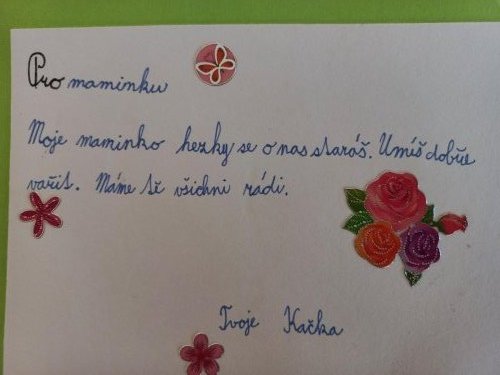 Pro maminku
Moje maminko hezky se o nas staráš. Umíš dobře
vařit. Máme tě všichni rádi.
Tvoje Kačka